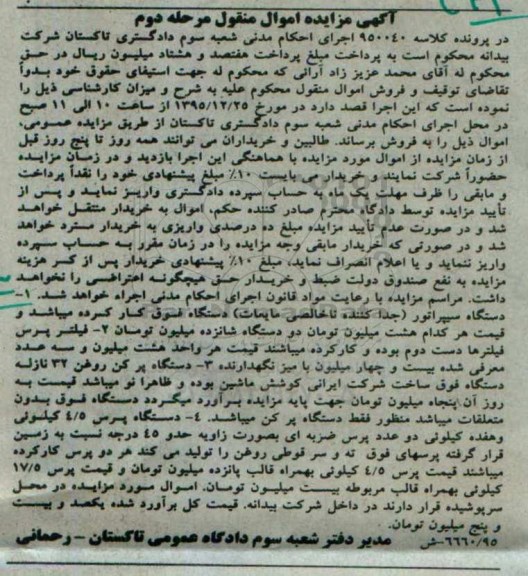 آگهی مزایده اموال منقول مرحله دوم
در پرونده کلاسه ۹۵۰۰۴۰ اجرای احکام مدنی شعبه سوم دادگستری تاکستان شرکت
بیدانه محکوم است به پرداخت مبلغ پرداخت هفتصد و هشتاد میلیون ریال در حق
محکوم له آقای محمد عزیز زاد آرائی که محکوم له جهت استیفای حقوق خود بدواً
تقاضای توقیف و فروش اموال منقول محکوم علیه به شرح و میزان کارشناسی ذیل را
نموده است که این اجرا قصد دارد در مورخ ۱۳۹۵/۱۲/۲۵ از ساعت ۱۰ الی ۱۱ صبح
در محل اجرای احکام مدنی شعبه سوم دادگستری تاکستان از طریق مزایده عمومی،
اموال ذیل را به فروش برساند. طالبین و خریداران می توانند همه روز تا پنج روز قبل
از زمان مزایده از اموال مورد مزایده با هماهنگی این اجرا بازدید و در زمان مزایده
حضوراً شرکت نمایند و خریدار می بایست ۱۰٪ مبلغ پیشنهادی خود را نقداً پرداخت
و مابقی را ظرف مهلت یک ماه به حساب سپرده دادگستری واریز نماید و پس از
تأیید مزایده توسط دادگاه محترم صادر کننده حکم، اموال به خریدار منتقل خواهد
شد و در صورت عدم تأیید مزایده مبلغ ده درصدی واریزی به خریدار مسترد خواهد
شد و در صورتی که خریدار مابقی وجه مزایده را در زمان مقرر به حساب سپرده
واریز ننماید و یا اعلام انصراف نماید، مبلغ ۱۰٪ پیشنهادی خریدار پس از کسر هزینه
مزایده به نفع صندوق دولت ضبط و خریدار حق هیچگونه اعتراضی را نخواهد
داشت. مراسم مزایده با رعایت مواد قانون اجرای احکام مدنی اجراء خواهد شد. ۱-
دستگاه سیپراتور (جدا کننده ناخالصی مایعات) دستگاه فوق کار کرده میباشد و
قیمت هر کدام هشت میلیون تومان دو دستگاه شانزده میلیون تومان ۲- فیلتر پرس
فیلترها دست دوم بوده و کارکرده میباشند قیمت هر واحد هشت میلیون و سه عدد
معرفی شده بیست و چهار میلیون با میز نگهدارنده ۳- دستگاه پر کن روغن ۳۲ نازله
دستگاه فوق ساخت شرکت ایرانی کوشش ماشین بوده و ظاهرا نو میباشد قیمت به
روز آن پنجاه میلیون تومان جهت پایه مزایده برآورد میگردد دستگاه فوق بدون
متعلقات میباشد منظور فقط دستگاه پر کن میباشد. ۴- دستگاه پرس ۴/۵ کیلوئی
وهفده کیلوئی دو عدد پرس ضربه ای بصورت زاویه حدو ۴۵ درجه نسبت به زمین
قرار گرفته پرسهای فوق ته و سر قوطی روغن را تولید می کند هر دو پرس کارکرده
میباشند قیمت پرس ۴/۵ کیلوئی بهمراه قالب پانزده میلیون تومان و قیمت پرس ۱۷/۵
کیلوئی بهمراه قالب مربوطه بیست میلیون تومان. اموال مورد مزایده در محل
سرپوشیده قرار دارند در داخل شرکت بیدانه. قیمت کل برآورد شده یکصد و بیست
و پنج میلیون تومان.
۶۶۶۰/۹۵-ش مدیر دفتر شعبه سوم دادگاه عمومی تاکستان - رحمانی